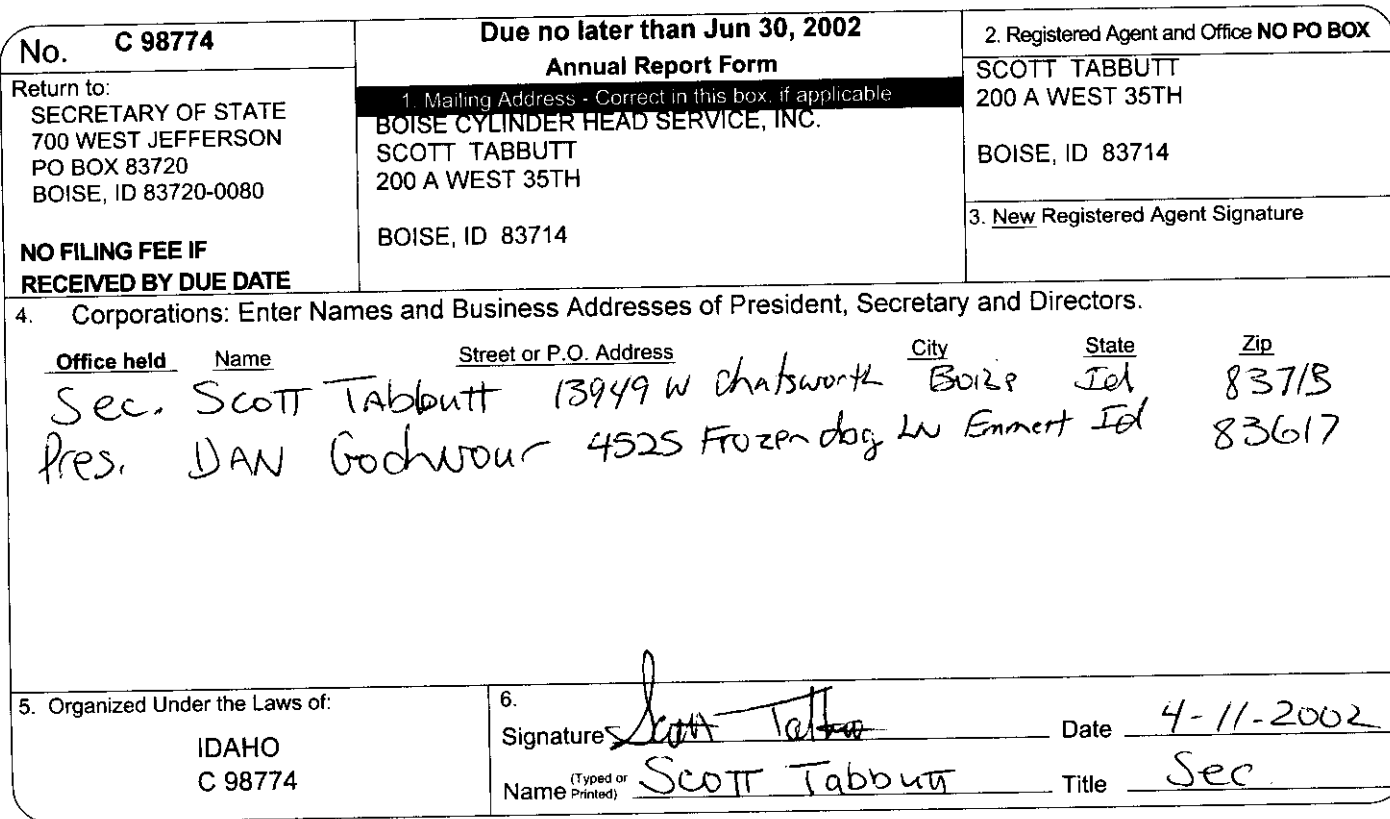 No. C 98774
Return to:
SECRETARY OF STATE
700 WEST JEFFERSON
PO BOX 83720
BOISE, ID 83720-0080
NO FILING FEE IF
RECEIVED BY DUE DATE
Due no later than Jun 30, 2002
Annual Report Form
1. Mailing Address - Correct in this box, if applicable
BOISE CYLINDER HEAD SERVICE, INC.
SCOTT TABBUTT
200 A WEST 35TH
BOISE, ID 83714
2. Registered Agent and Office NO PO BOX
SCOTT TABBUTT
200 A WEST 35TH
BOISE, ID 83714
3. New Registered Agent Signature
4. Corporations: Enter Names and Business Addresses of President, Secretary and Directors.
Office held Name Street or P.O. Address City State Zip
Sec. Scott Tabbutt 13949 W Chatsworth Boise Id
Pres. DAN 4525 Frozen dog LN Emmert Id 83617
5. Organized Under the Laws of:
IDAHO
C 98774
6.
Signature Scott Date 4-11-2002
Name (Typed or Printed) Scott Tabbutt Title Sec